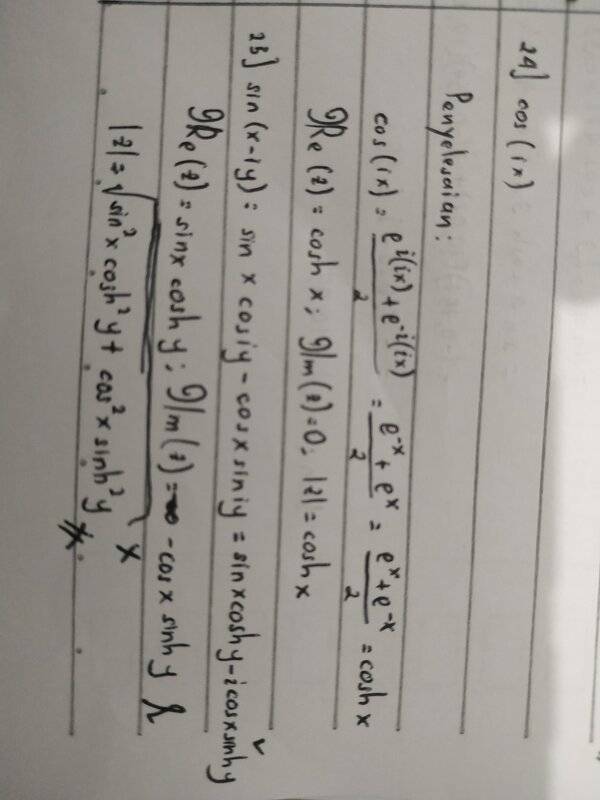 24] cos (ix)
Penyelesaian:
cos (ix) = e^{i(ix)} + e^{-i(ix)} / 2 = e^{-x} + e^{x} / 2 = e^{x} + e^{-x} / 2 = cosh x
Re (z) = cosh x ; Im (z) = 0 ; |z| = cosh x
25] sin (x-iy) = sin x cos iy - cos x sin iy = sin x cosh y - i cos x sinh y
Re (z) = sin x cosh y ; Im (z) = - cos x sinh y &
|z| = √sin² x cosh² y + cos² x sinh² y